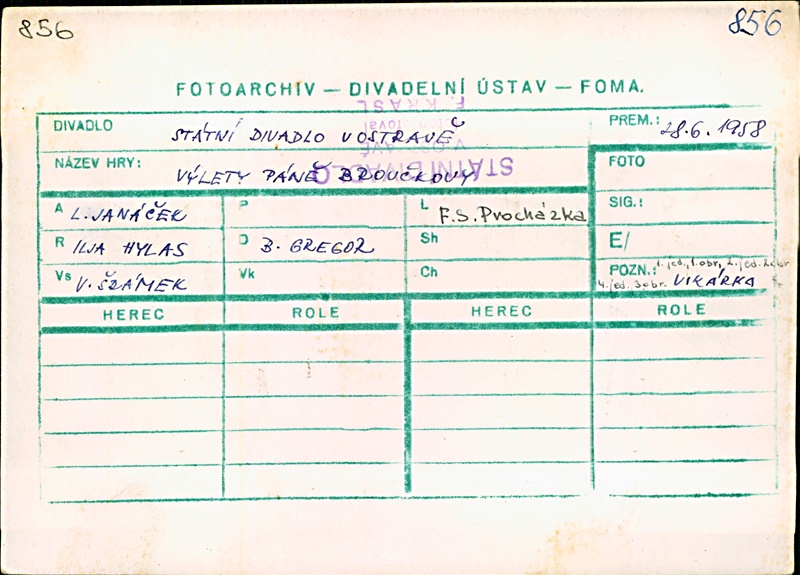 856
856
FOTOARCHIV — DIVADELNÍ ÚSTAV — FOMA.
F. KRASL
STÁTNÍ DIVADLO
DIVADLO STÁTNÍ DIVADLO V OSTRAVĚ
PREM.: 28.6.1958
NÁZEV HRY: VÝLETY PÁNĚ BROUČKOVY
FOTO
SIG.:
A L. JANÁČEK
P
L F.S. Procházka
R ILJA HYLAS
D B. GREGOR
Sh
E/
Vs V. ŠRÁMEK
Vk
Ch
POZN.: 1. jed., 1. obr, 2. jed. 2. obr
4. jed. 3 obr. VIKÁRKA
HEREC ROLE HEREC ROLE